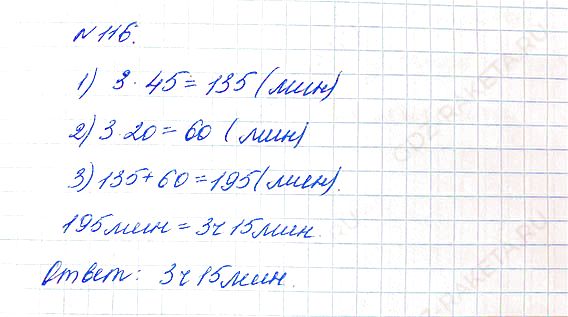 №116.
1) 3·45=135(мин)
2) 3·20=60 (мин)
3) 135+60=195(мин).
195мин=3ч15мин.
Ответ: 3ч15мин.
GDZ-RAKETA.RU
GDZ-RAKETA.RU